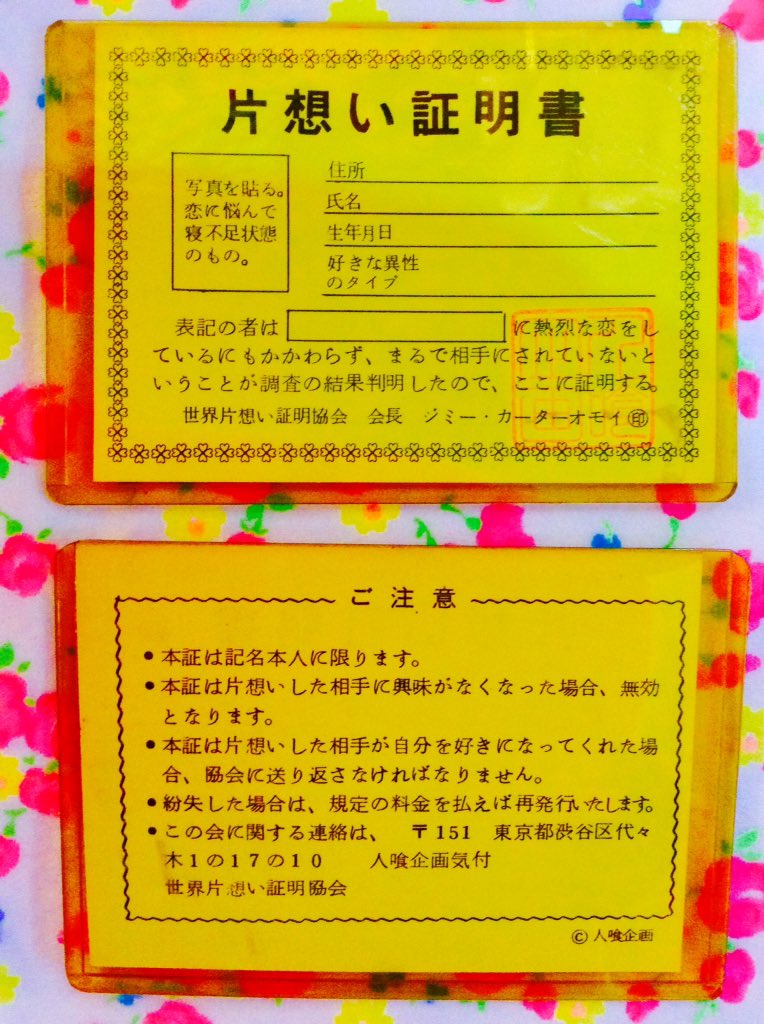 片想い証明書
写真を貼る。
恋に悩んで
寝不足状態
のもの。
住所
氏名
生年月日
好きな異性
のタイプ
表記の者は に熱烈な恋をし
ているにもかかわらず、まるで相手にされていないと
いうことが調査の結果判明したので、ここに証明する。
世界片想い証明協会 会長 ジミー・カーターオモイ㊞
ご注意
●本証は記名本人に限ります。
●本証は片想いした相手に興味がなくなった場合、無効
となります。
●本証は片想いした相手が自分を好きになってくれた場
合、協会に送り返さなければなりません。
●紛失した場合は、規定の料金を払えば再発行いたします。
●この会に関する連絡は、 〒151 東京都渋谷区代々
木1の17の10 人喰企画気付
世界片想い証明協会
©人喰企画